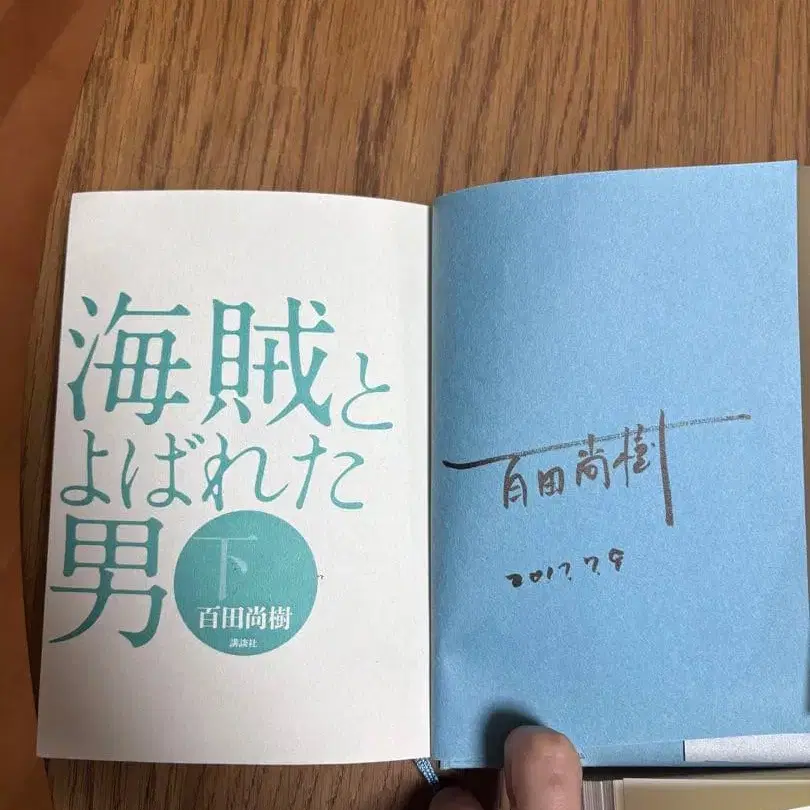 海賊と
よばれた
男
下
百田尚樹
講談社
百田尚樹
2017.7.9